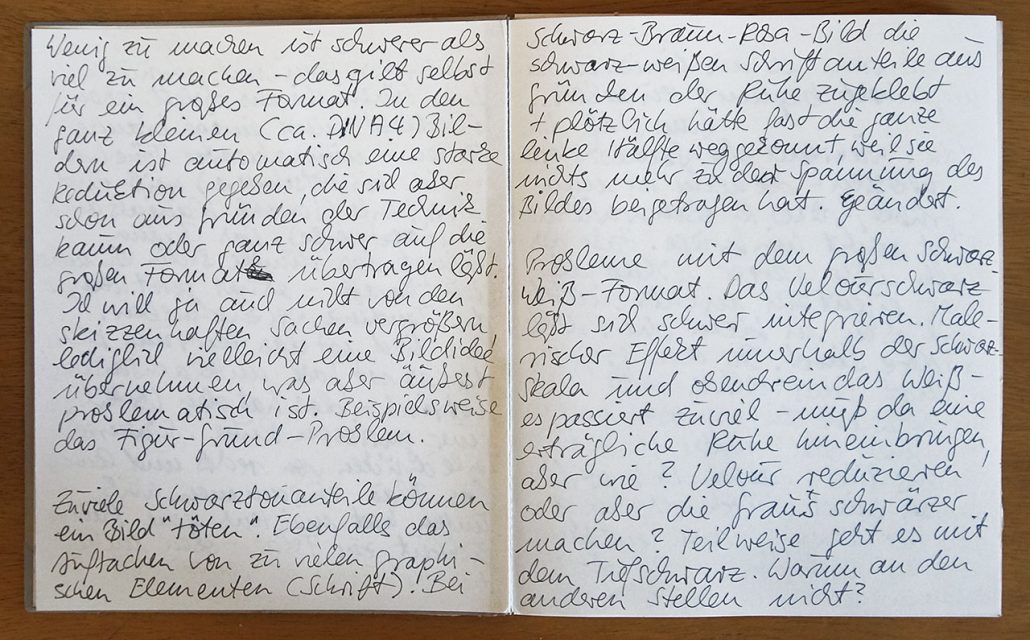 Wenig zu machen ist schwerer als
viel zu machen – das gilt selbst
für ein großes Format. In den
ganz kleinen (ca. DIN A4) Bil-
dern ist automatisch eine starke
Reduktion gegeben, die sich aber
schon aus Gründen der Technik
kaum oder ganz schwer auf die
großen Format übertragen läßt.
Ich will ja auch nicht von den
skizzenhaften Sachen vergrößern,
lediglich vielleicht eine Bildidee
übernehmen, was aber äußerst
problematisch ist. Beispielsweise
das Figur-Grund-Problem.
Zuviele Schwarztonanteile können
ein Bild "töten". Ebenfalls das
Auftauchen von zu vielen graphi-
schen Elementen (Schrift). Bei
Schwarz-Braun-Rosa-Bild die
schwarz-weißen Schriftanteile aus
Gründen der Ruhe zugeklebt
+ plötzlich hätte fast die ganze
linke Hälfte weggekonnt, weil sie
nichts mehr zu der Spannung des
Bildes beigetragen hat. Geändert.
Probleme mit dem großen Schwarz-
Weiß-Format. Das Velourschwarz
läßt sich schwer integrieren. Male-
rischer Effekt innerhalb der Schwarz-
skala und obendrein das Weiß –
es passiert zuviel – muß da eine
erträgliche Ruhe hineinbringen,
aber wie? Velour reduzieren
oder aber die Graus schwärzer
machen? Teilweise geht es mit
dem Tiefschwarz. Warum an den
anderen Stellen nicht?